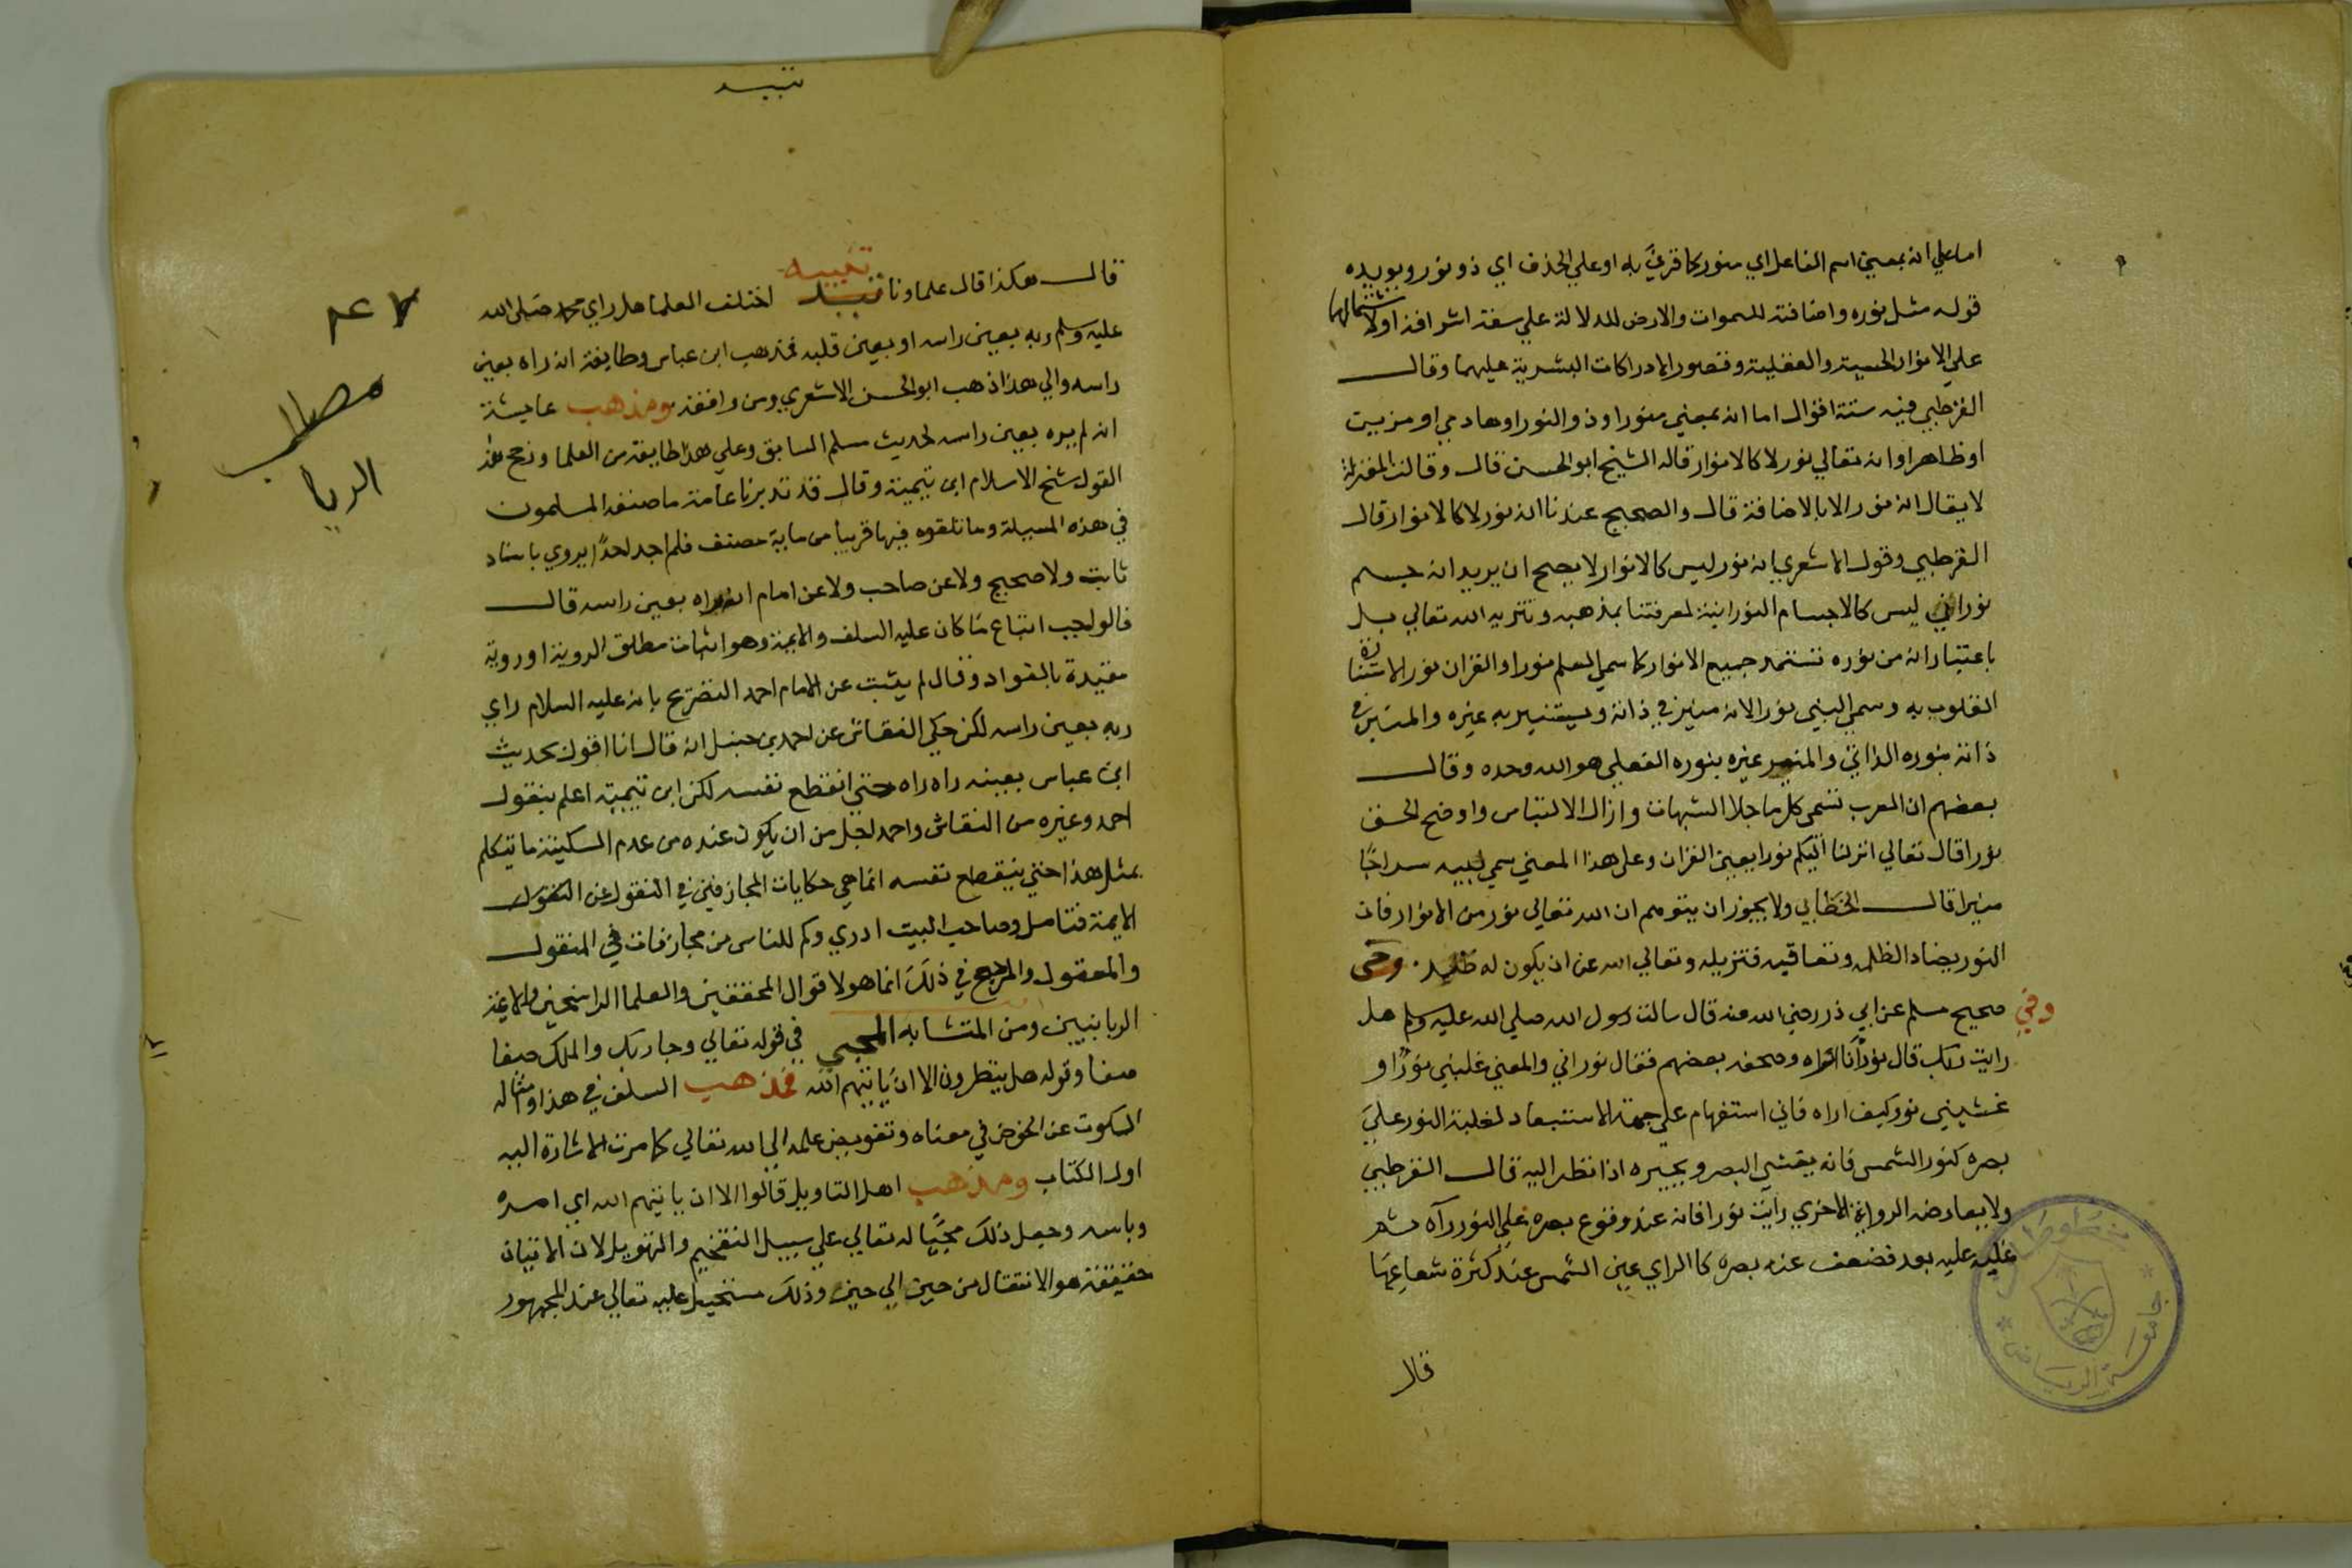 اما علي انه بمعني اسم الفاعل اي منور كما قرئ به او علي الحذف اي ذو نور ويويده
قوله مثل نوره واضافته للسموات والارض للدلالة علي سعة اشراقه اولاشتمالهما
علي الانوار الحسية والعقلية وقصور الادراكات البشرية عليهما وقال
القرطبي فيه ستة اقوال اما انه بمعني منور او ذو النور او هادي او مزين
او ظاهر او انه تعالي نور لا كالانوار قاله الشيخ ابو الحسن قال وقالت المعتزلة
لا يقال انه نور الا بالاضافة قال والصحيح عندنا انه نور لا كالانوار قال
القرطبي وقول الاشعري انه نور ليس كالانوار لا يصح ان يريد انه جسم
نوراني ليس كالاجسام النورانية لمعرفتنا بمذهبه وتنزيه الله تعالي بل
باعتبار انه من نوره تستمد جميع الانوار كما سمي العلم نورا والقران نور الاستنارة
القلوب به وسمي النبي نورا لانه منير في ذاته ويستنير به غيره والمنير في
ذاته بنوره الذاتي والمنير غيره بنوره الفعلي هو الله وحده وقال
بعضهم ان العرب تسمي كل ما جلا الشبهات وازال الالتباس واوضح الحق
نورا قال تعالي انزلنا اليكم نورا يعين القران وعلي هذا المعني سمي نبيه سراجًا
منيرا قال الخطابي ولا يجوز ان يتوهم ان الله تعالي نور من الانوار فان
النور يضاد الظلمه وتعاقبه فتزيله وتعالي الله عن ان يكون له ضد .
وفي صحيح مسلم عن ابي ذر رضي الله عنه قال سالت رسول الله صلي الله عليه وسلم هل
رايت ربك قال نورٌ أَنا اراه وصحفه بعضهم فقال نوراني والمعني غلبني نورٌ او
غشيني نور كيف اراه فاني استفهام علي جهة الاستبعاد لغلبة النور علي
بصره كنور الشمس فانه يغشي البصر ويحيره اذا نظر اليه قال القرطبي
ولا يعارضه الرواية الاخري رايت نورا فانه عند وقوع بصره علي النور رآه ثم
غلب عليه بعد فضعف عنه بصره كالراي عين الشمس عند كثرة شعاعها
قال
جامعة الرياض
تنبيه
قال هكذا قال علماونا تنبيه اختلف العلما هل راي محمد صلي الله
عليه وسلم ربه بعين راسه او بعين قلبه فمذهب ابن عباس وطايفة انه راه بعين
راسه والي هذا ذهب ابو الحسن الاشعري ومن وافقه ومذهب عايشة
انه لم يره بعين راسه لحديث مسلم السابق وعلي هذا طايفة من العلما ورجح هذا
القول شيخ الاسلام ابن تيمية وقال قد تدبرنا عامة ما صنفه المسلمون
في هذه المسيلة وما تلقوه فيها قريبا من ماية مصنف فلم اجد احدًا يروي باسناد
ثابت ولا صحيح ولا عن صاحب ولا عن امام انه راه بعين راسه قال
فالواجب اتباع ما كان عليه السلف والايمة وهو اثبات مطلق الروية او روية
مقيدة بالفواد وقال لم يثبت عن الامام احمد التصريح بانه عليه السلام راي
ربه بعين راسه لكن حكي النقاش عن احمد بن حنبل انه قال انا اقول بحديث
ابن عباس بعينه راه راه حتي انقطع نفسه لكن ابن تيمية اعلم بنقول
احمد وغيره من النقاش واحمد اجل من ان يكون عنده من عدم السكينة ما يتكلم
بمثل هذا حتي ينقطع نفسه انما هي حكايات المجازفين في النقول عن
الايمة فتامل وصاحب البيت ادري وكم للناس من مجازفات في المنقول
والمعقول والمرجح في ذلك انما هو لاقوال المحققين والعلما الراسخين والايمة
الربانيين ومن المتشابه المجي في قوله تعالي وجا ربك والملك صفا
صفا وقوله هل ينظرون الا ان ياتيهم الله فمذهب السلف في هذا وامثاله
السكوت عن الخوض في معناه وتفويض علمه الي الله تعالي كما مرت الاشارة اليه
اول الكتاب ومذهب اهل التاويل قالوا الا ان ياتيهم الله اي امره
وباسه وجعل ذلك مجيًا له تعالي علي سبيل التفخيم والتهويل لان الاتيان
حقيقة هو الانتقال من حين الي حين وذلك مستحيل عليه تعالي عند الجمهور
مطلب
الريا